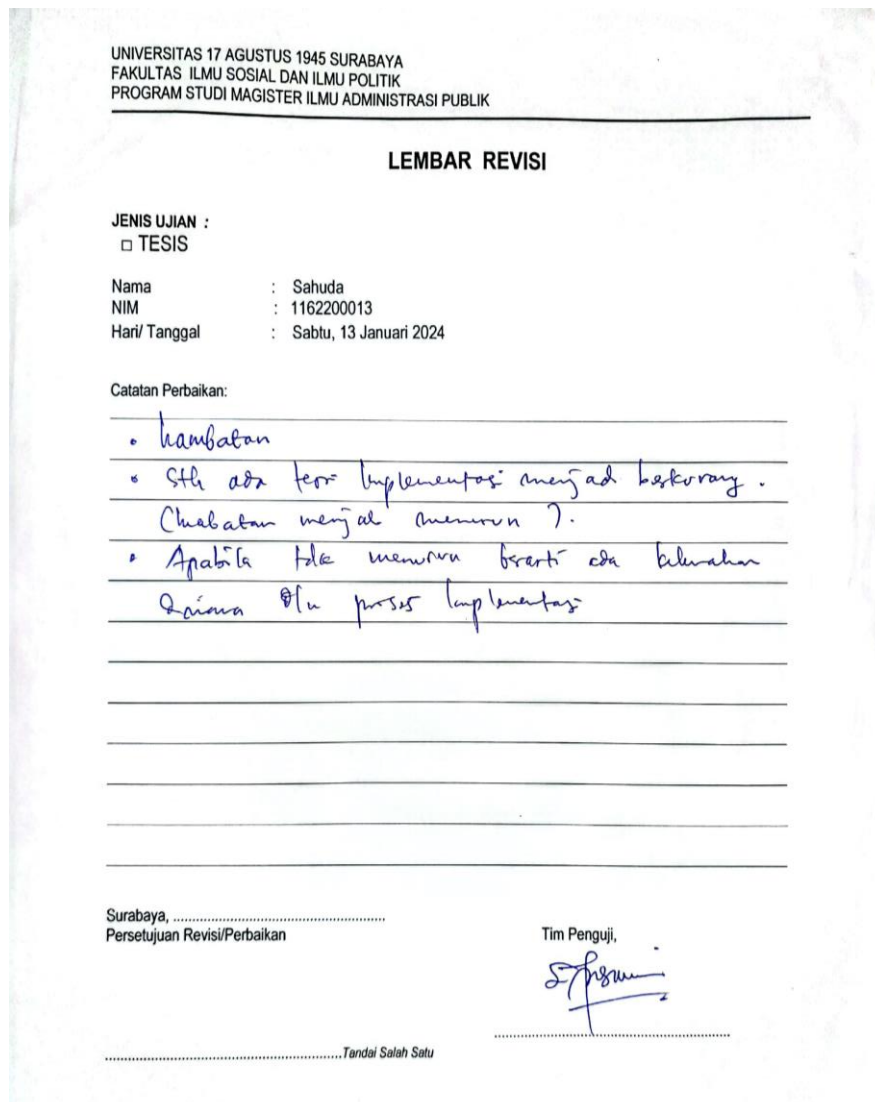 UNIVERSITAS 17 AGUSTUS 1945 SURABAYA
FAKULTAS ILMU SOSIAL DAN ILMU POLITIK
PROGRAM STUDI MAGISTER ILMU ADMINISTRASI PUBLIK
LEMBAR REVISI
JENIS UJIAN :
□ TESIS
Nama : Sahuda
NIM : 1162200013
Hari/ Tanggal : Sabtu, 13 Januari 2024
Catatan Perbaikan:
• hambatan
• Sth ada teori Implementasi menjad berkurang.
menjad menurun ?.
• Apabila tdk menurun berarti ada
proses Implementasi
Surabaya, ......................................................
Persetujuan Revisi/Perbaikan
Tim Penguji,
............................................................
............................................................Tandai Salah Satu